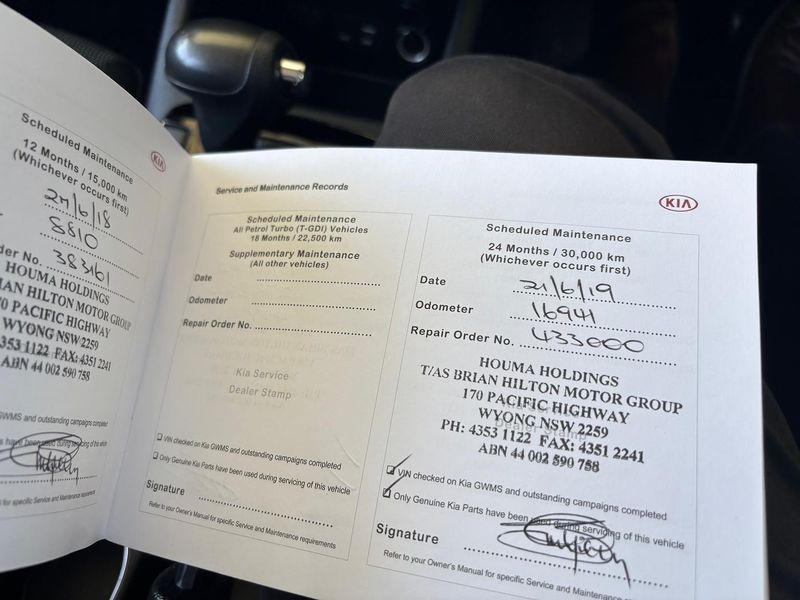 Scheduled Maintenance
KIA
12 Months / 15,000 km
(Whichever occurs first)
5810
383161
HOUMA HOLDINGS
IAN HILTON MOTOR GROUP
70 PACIFIC HIGHWAY
WYONG NSW 2259
353 1122 FAX: 4351 2241
ABN 44 002 590 758
GWMS and outstanding campaigns completed
have been used during servicing of this vehicle
for specific Service and Maintenance
Service and Maintenance Records
KIA
Scheduled Maintenance
All Petrol Turbo (T-GDI) Vehicles
18 Months / 22,500 km
Supplementary Maintenance
(All other vehicles)
Date
Odometer
Repair Order No.
Kia Service
Dealer Stamp
VIN checked on Kia GWMS and outstanding campaigns completed
Only Genuine Kia Parts have been used during servicing of this vehicle
Signature
Refer to your Owner's Manual for specific Service and Maintenance requirements
Scheduled Maintenance
24 Months / 30,000 km
(Whichever occurs first)
Date 21/6/19
Odometer 16941
Repair Order No. 433000
HOUMA HOLDINGS
T/AS BRIAN HILTON MOTOR GROUP
170 PACIFIC HIGHWAY
WYONG NSW 2259
Dealer Stamp
PH: 4353 1122 FAX: 4351 2241
ABN 44 002 590 758
VIN checked on Kia GWMS and outstanding campaigns completed
Only Genuine Kia Parts have been used during servicing of this vehicle
Signature
Refer to your Owner's Manual for specific Service and Maintenance